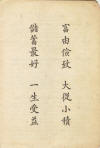 富由儉致　大從小積
儲蓄最好　一生受益